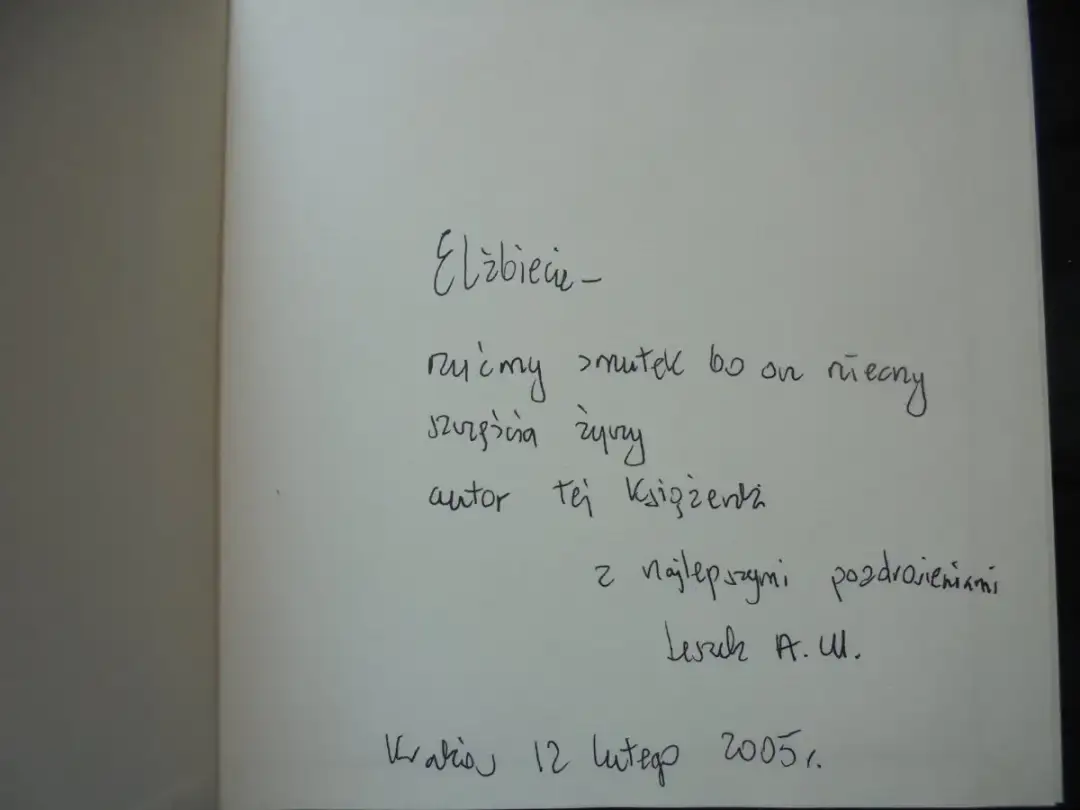 Elżbiecie –
rzućmy smutek bo on niecny
szczęścia życzy
autor tej książeczki
z najlepszymi pozdrowieniami
Leszek A. M.
Kraków 12 lutego 2005 r.